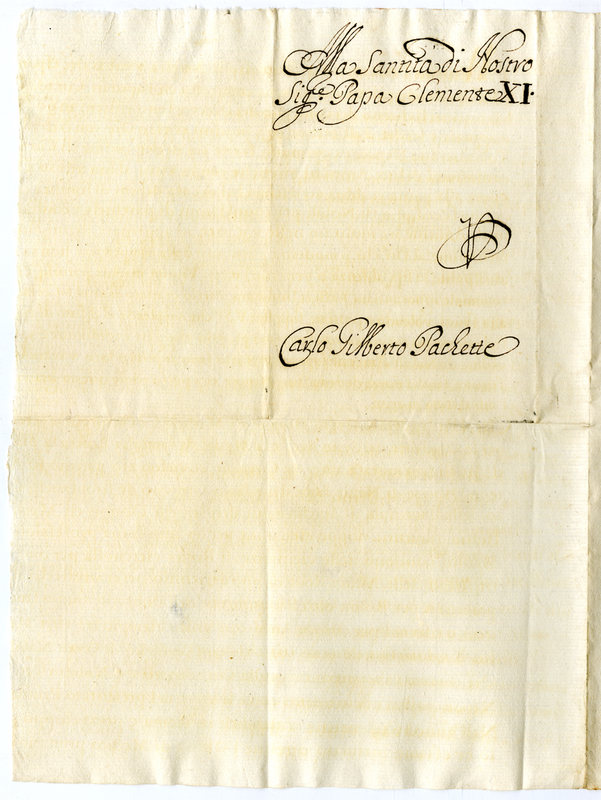 Alla Santità di Nostro
Sig.re Papa Clemente XI.
Carlo Gilberto Pachette